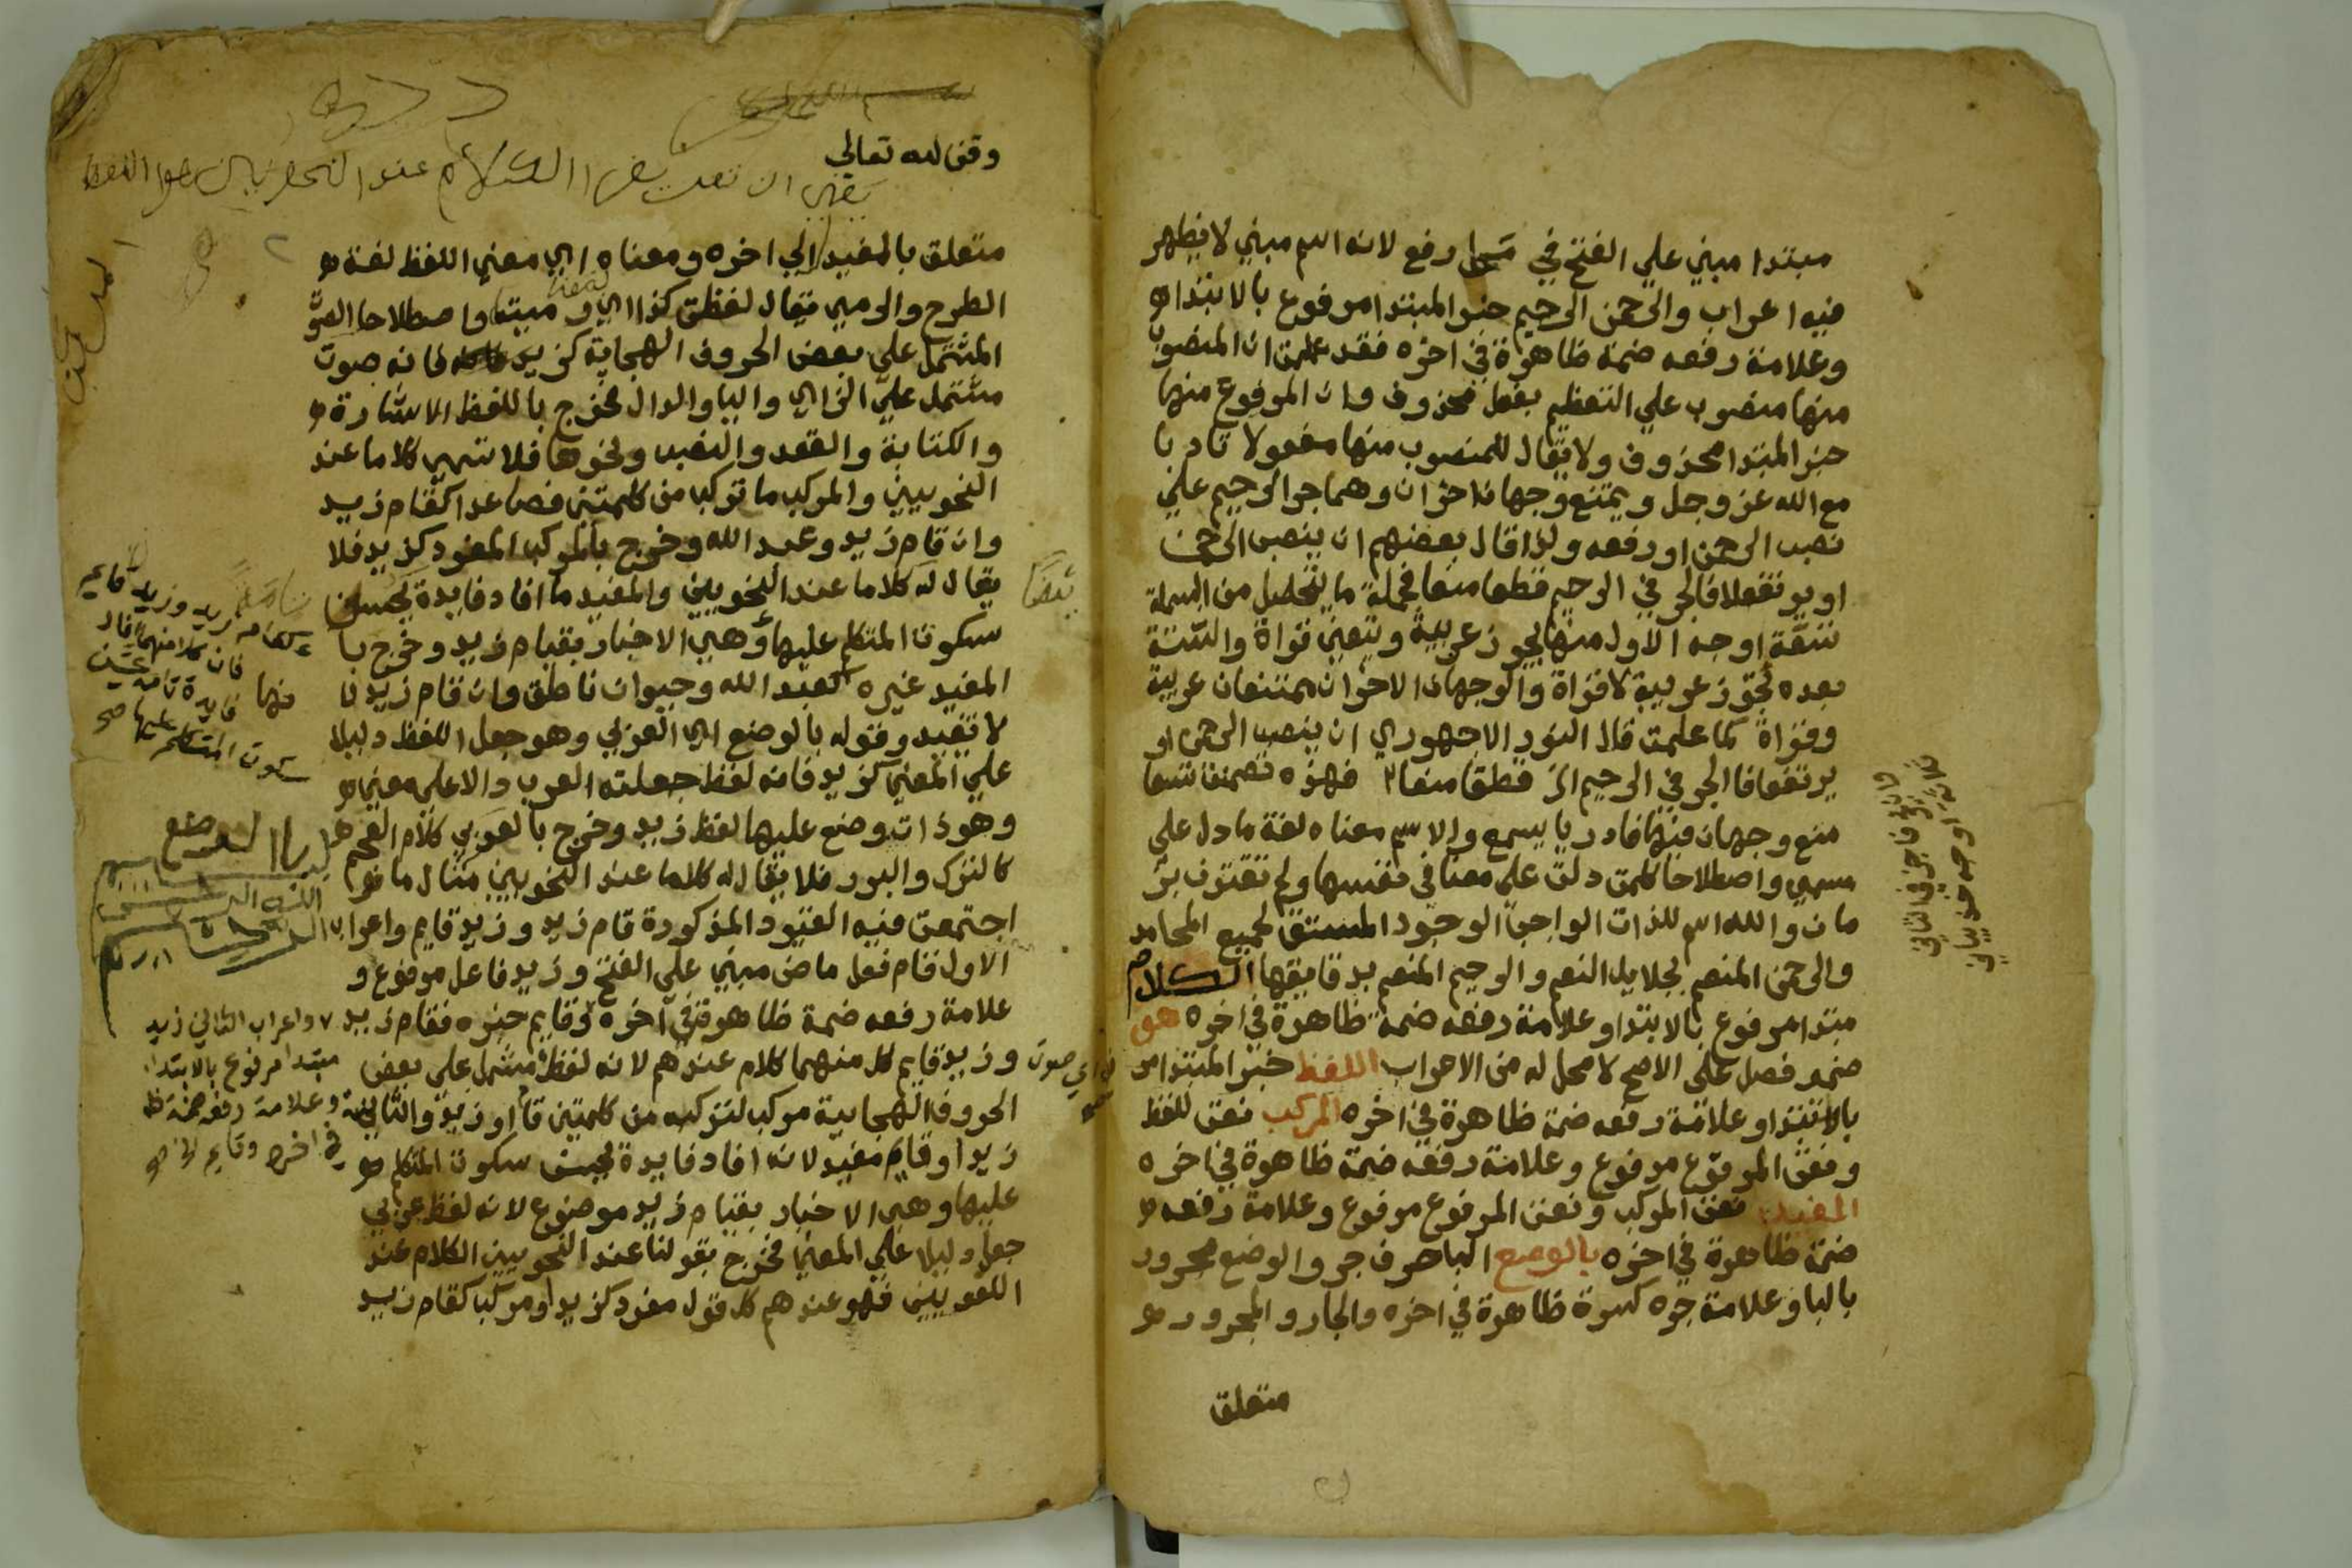 مبتدا مبني علي الفتح في محل رفع لانه اسم مبني لا يظهر
فيه اعراب والرحمن الرحيم خبر المبتدا مرفوع بالابتدا
وعلامة رفعه ضمة ظاهرة في اخره فقد علمت ان المنصوب
منها منصوب علي التعظيم بفعل محذوف وان المرفوع منها
خبر المبتدا محذوف ولا يقال للمنصوب منها مفعولا تادبا
مع الله عز وجل ويمتنع وجهان اخران وهما جر الرحيم علي
نصب الرحمن او رفعه ولذا قال بعضهم ان ينصب الرحمن
او يرتفعا فالجر في الرحيم قطعا منعا فجملة ما يتحصل من البسملة
تسعة اوجه الاول منها يجوز عربية ويتعين قراة والستة
بعده تجوز عربية لا قراة والوجهان الاخران يمتنعان عربية
وقراة كما علمت قال النور الاجهوري ان ينصب الرحمن او
يرتفعا فالجر في الرحيم قطعا منعا فهذه تضمنت تسعا
منع وجهان منها فادر يا يسمع والاسم معناه لغة ما دل علي
مسمي واصطلاحا كلمة دلت علي معنا في نفسها ولم تقترن بز
مان والله اسم للذات الواجب الوجود المستحق لجميع المحامد
والرحمن المنعم بجلايل النعم والرحيم المنعم بدقايقها الكلام
مبتدا مرفوع بالابتدا وعلامة رفعه ضمة ظاهرة في اخره هو
ضمير فصل علي الاصح لا محل له من الاعراب اللفظ خبر المبتدا مر
بالابتدا وعلامة رفعه ضمة ظاهرة في اخره المركب نعت للفظ
ونعت المرفوع مرفوع وعلامة رفعه ضمة ظاهرة في اخره
المفيد نعت المركب ونعت المرفوع مرفوع وعلامة رفعه
ضمة ظاهرة في اخره بالوضع الباحرف جر والوضع مجرور
بالبا وعلامة جره كسرة ظاهرة في اخره والجار والمجرور
متعلق
وقف لله تعالي
الكلام عند النحويين هو اللفظ
متعلق بالمفيد الي اخره ومعناه اي معني اللفظ لغة
الطرح والرمي يقال لفظت كذا اي رميته واصطلاحا الصوت
المشتمل علي بعض الحروف الهجاية كزيد فانه صوت
مشتمل علي الزاي واليا والدال فخرج باللفظ الاشارة
والكتابة والعقد والنصب ونحوها فلا تسمي كلاما عند
النحويين والمركب ما تركب من كلمتين فصاعدا كقام زيد
وان قام زيد وعبد الله وخرج بالمركب المفرد كزيد فلا
يقال له كلاما عند النحويين والمفيد ما افاد فايدة يحسن
سكوت المتكلم عليها وهي الاخبار بقيام زيد وخرج با
المفيد غيره كعبد الله وحيوان ناطق وان قام زيد فا
لا تفيد وقوله بالوضع اي العربي وهو جعل اللفظ دليلا
علي المعني كزيد فانه لفظ جعلته العرب دالا علي معني
وهو ذات وضع عليها لفظ زيد وخرج بالعربي كلام العجم
كالترك والبربر فلا يقال له كلاما عند النحويين مثال ما
اجتمعت فيه القيود المذكورة قام زيد وزيد قايم واعراب
الاول قام فعل ماض مبني علي الفتح وزيد فاعل مرفوع و
علامة رفعه ضمة ظاهرة في آخره وقايم خبره فقام زيد
وزيد قايم كل منهما كلام عندهم لانه لفظ مشتمل علي بعض
الحروف الهجايية مركب لتركبه من كلمتين قام وزيد والثانية
زيد وقايم مفيد لانه افاد فايدة يحسن سكوت المتكلم
عليها وهي الاخبار بقيام زيد موضوع لانه لفظ عربي
جعل دليلا علي المعني فخرج بقولنا عند النحويين الكلام عند
اللغويين فهو عندهم كل قول مفرد كزيد او مركب كقام زيد
زيد وزيد قايم
فان كلا منهما افاد
فايدة تامة يحسن
سكوت المتكلم عليها صح
واعراب الثاني زيد
مبتدا مرفوع بالابتدا
وعلامة رفعه ضمة ظا
في اخره وقايم
اي صوت